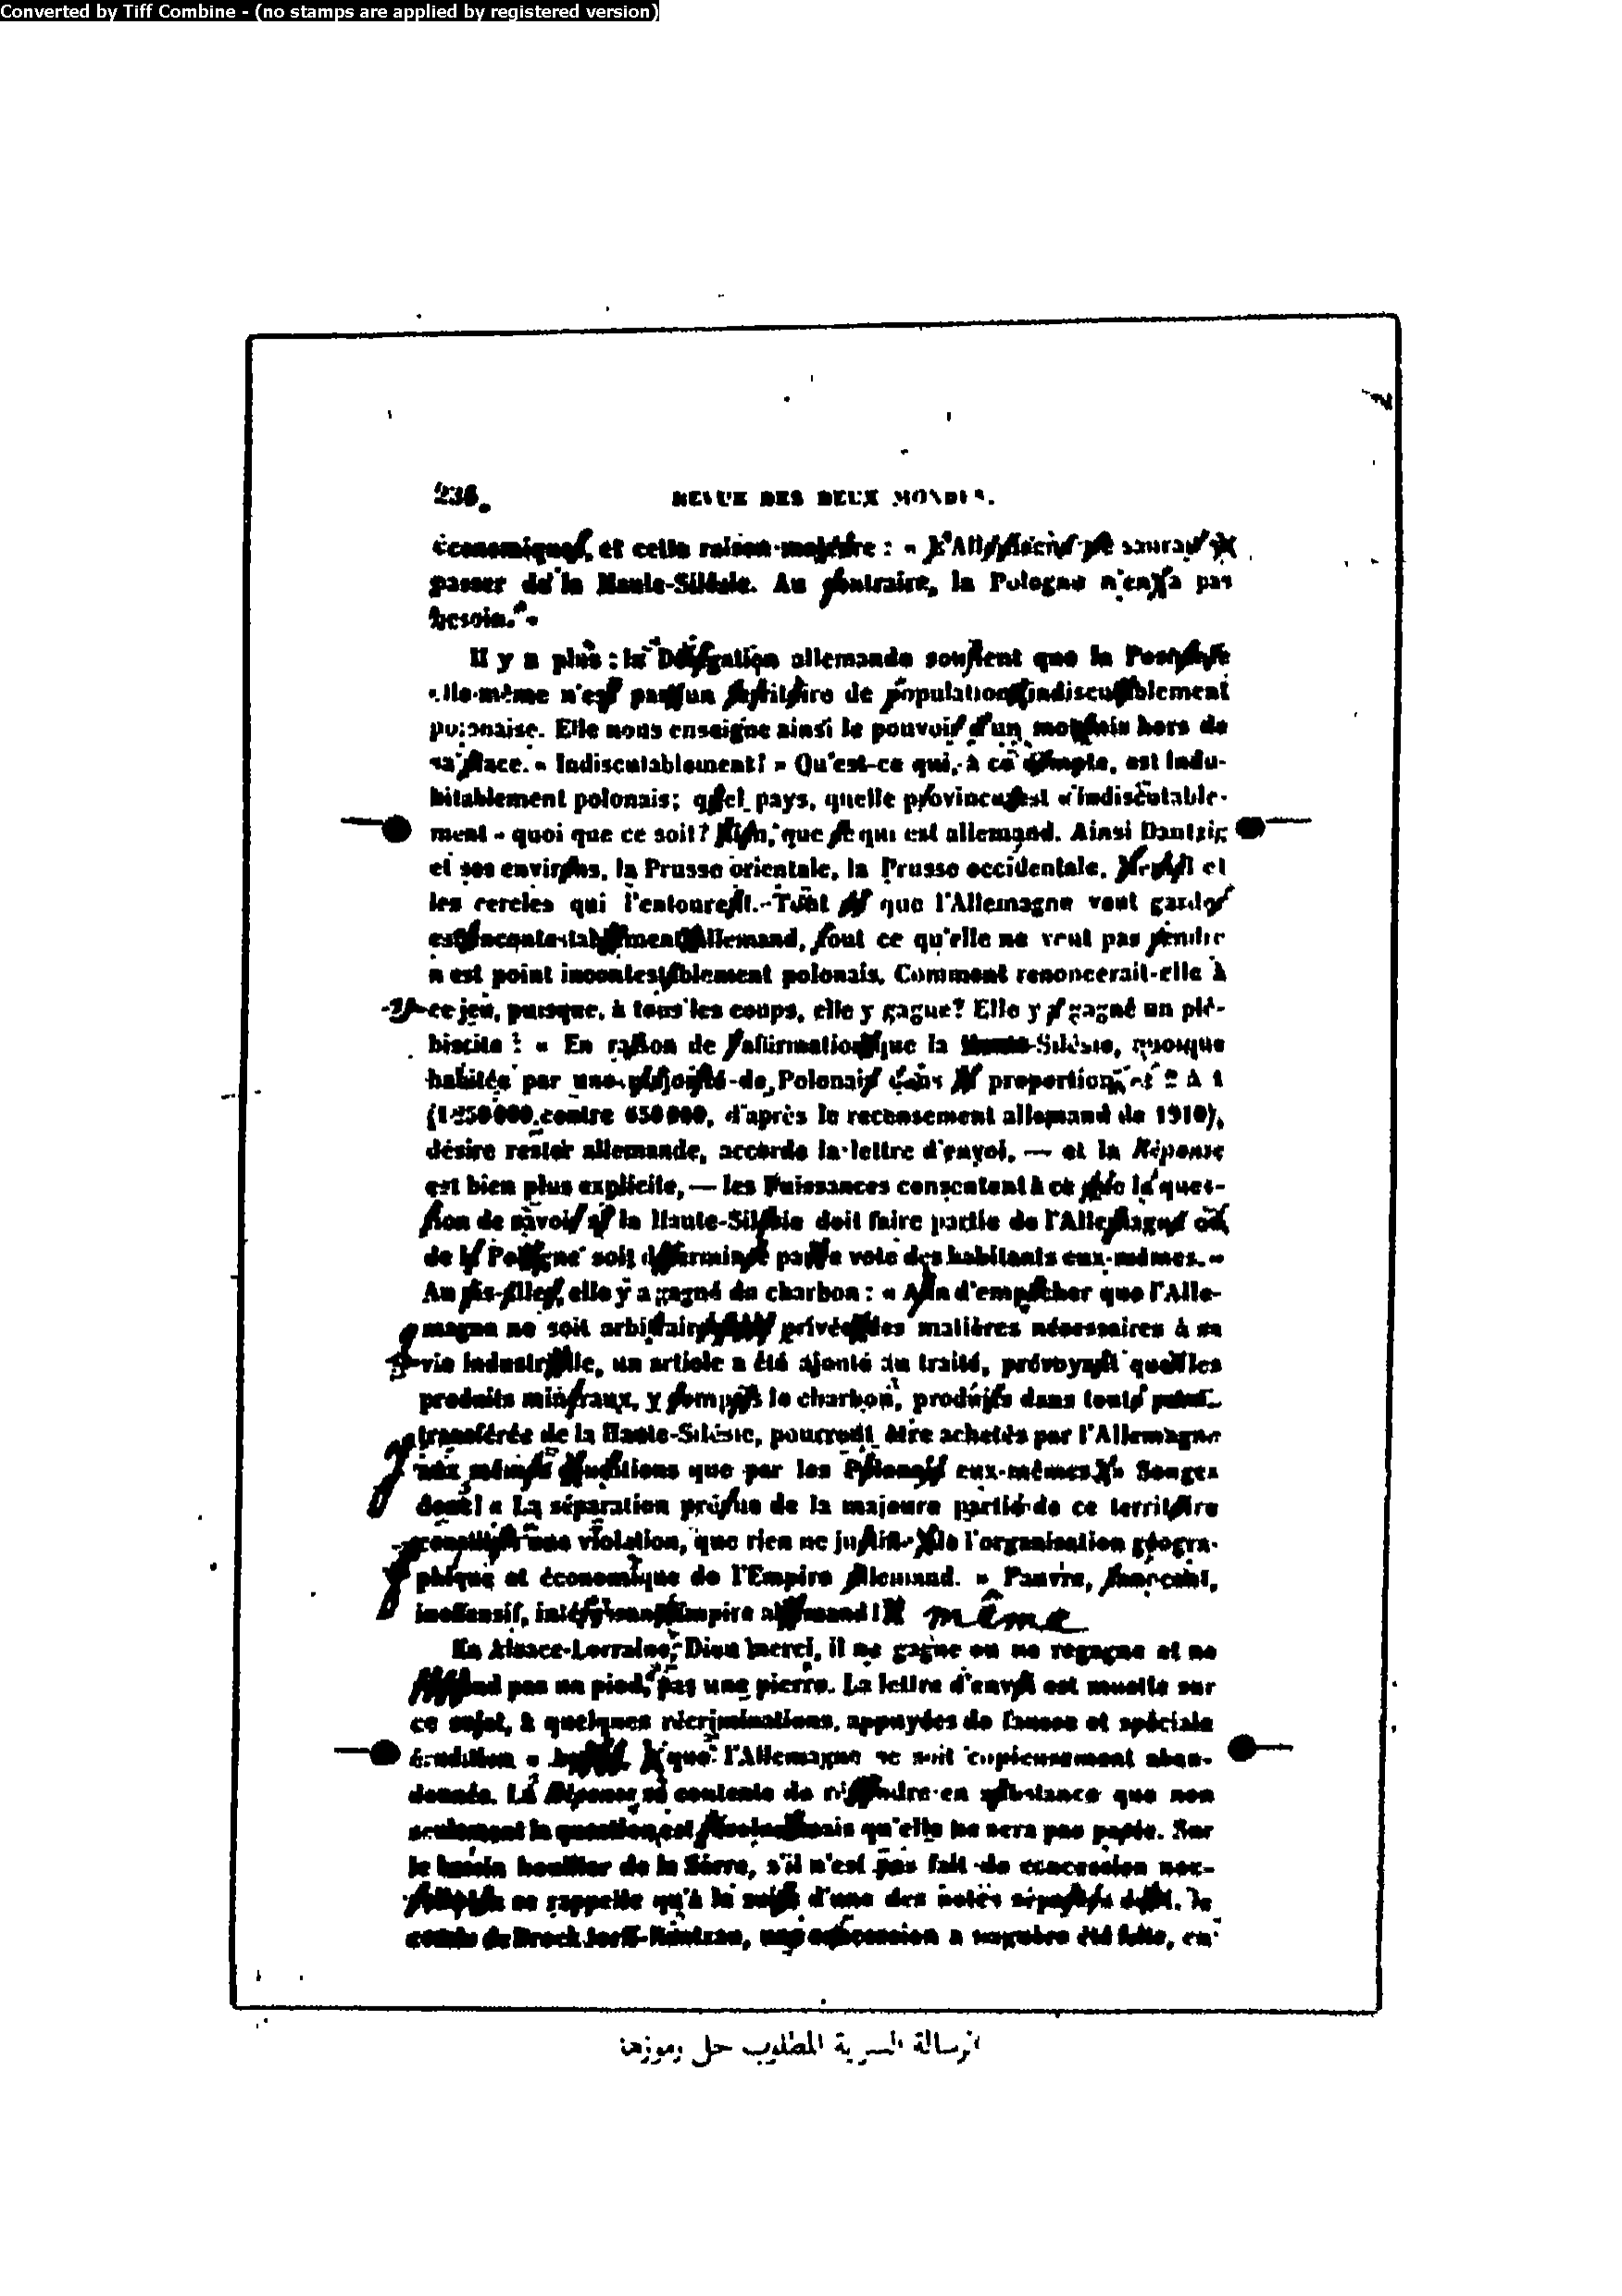 Converted by Tiff Combine - (no stamps are applied by registered version)
REVUE DES DEUX MONDES.
économiques, et cette raison majeure : « L'Allemagne ne saurait se
passer de la Haute-Silésie. Au contraire, la Pologne n'en a pas
besoin. »
Il y a plus : la Délégation allemande soutient que la Posnanie
elle-même n'est pas un territoire de population indiscutablement
polonaise. Elle nous enseigne ainsi le pouvoir d'un mot mis hors de
sa place. « Indiscutablement! » Qu'est-ce qui, à ce compte, est indu-
bitablement polonais; quel pays, quelle province est « indiscutable-
ment » quoi que ce soit? Rien, que ce qui est allemand. Ainsi Dantzig
et ses environs, la Prusse orientale, la Prusse occidentale, et
les cercles qui l'entourent. Tout ce que l'Allemagne veut garder
est incontestablement allemand, tout ce qu'elle ne veut pas rendre
n'est point incontestablement polonais. Comment renoncerait-elle à
ce jeu, puisque, à tous les coups, elle y gagne? Elle y a gagné un plé-
biscite : « En raison de l'affirmation que la Haute-Silésie, quoique
habitée par une majorité de Polonais dans la proportion de 2 à 1
(1 250 000 contre 650 000, d'après le recensement allemand de 1910),
désire rester allemande, accorde la lettre d'envoi, — et la Réponse
est bien plus explicite, — les Puissances consentent à ce que la ques-
tion de savoir si la Haute-Silésie doit faire partie de l'Allemagne ou
de la Pologne soit déterminée par le vote des habitants eux-mêmes. »
Au pis-aller, elle y a gagné du charbon : « Afin d'empêcher que l'Alle-
magne ne soit arbitrairement privée des matières nécessaires à sa
vie industrielle, un article a été ajouté au traité, prévoyant que les
produits minéraux, y compris le charbon, produits dans toute partie
transférée de la Haute-Silésie, pourront être achetés par l'Allemagne
aux mêmes conditions que par les Polonais eux-mêmes. » Songez
donc! « La séparation prévue de la majeure partie de ce territoire
constitue une violation, que rien ne justifie, de l'organisation géogra-
phique et économique de l'Empire allemand. » Pauvre, innocent,
inoffensif, intéressant Empire allemand! même
En Alsace-Lorraine, Dieu merci, il ne gagne ou ne regagne et ne
pas un pied, pas une pierre. La lettre d'envoi est muette sur
ce sujet, à quelques récriminations, appuyées de fausse et spéciale
érudition que l'Allemagne se soit copieusement aban-
donnée. La Réponse se contente de répondre en substance que non
seulement la question est résolue mais qu'elle ne sera pas posée. Sur
le bassin houiller de la Sarre, s'il n'est pas fait de concession nou-
on se rappelle qu'à la suite d'une des notes séparées du
comte de Brockdorff-Rantzau, une concession a naguère été faite, en
الرسالة السرية المطلوب حل رموزها